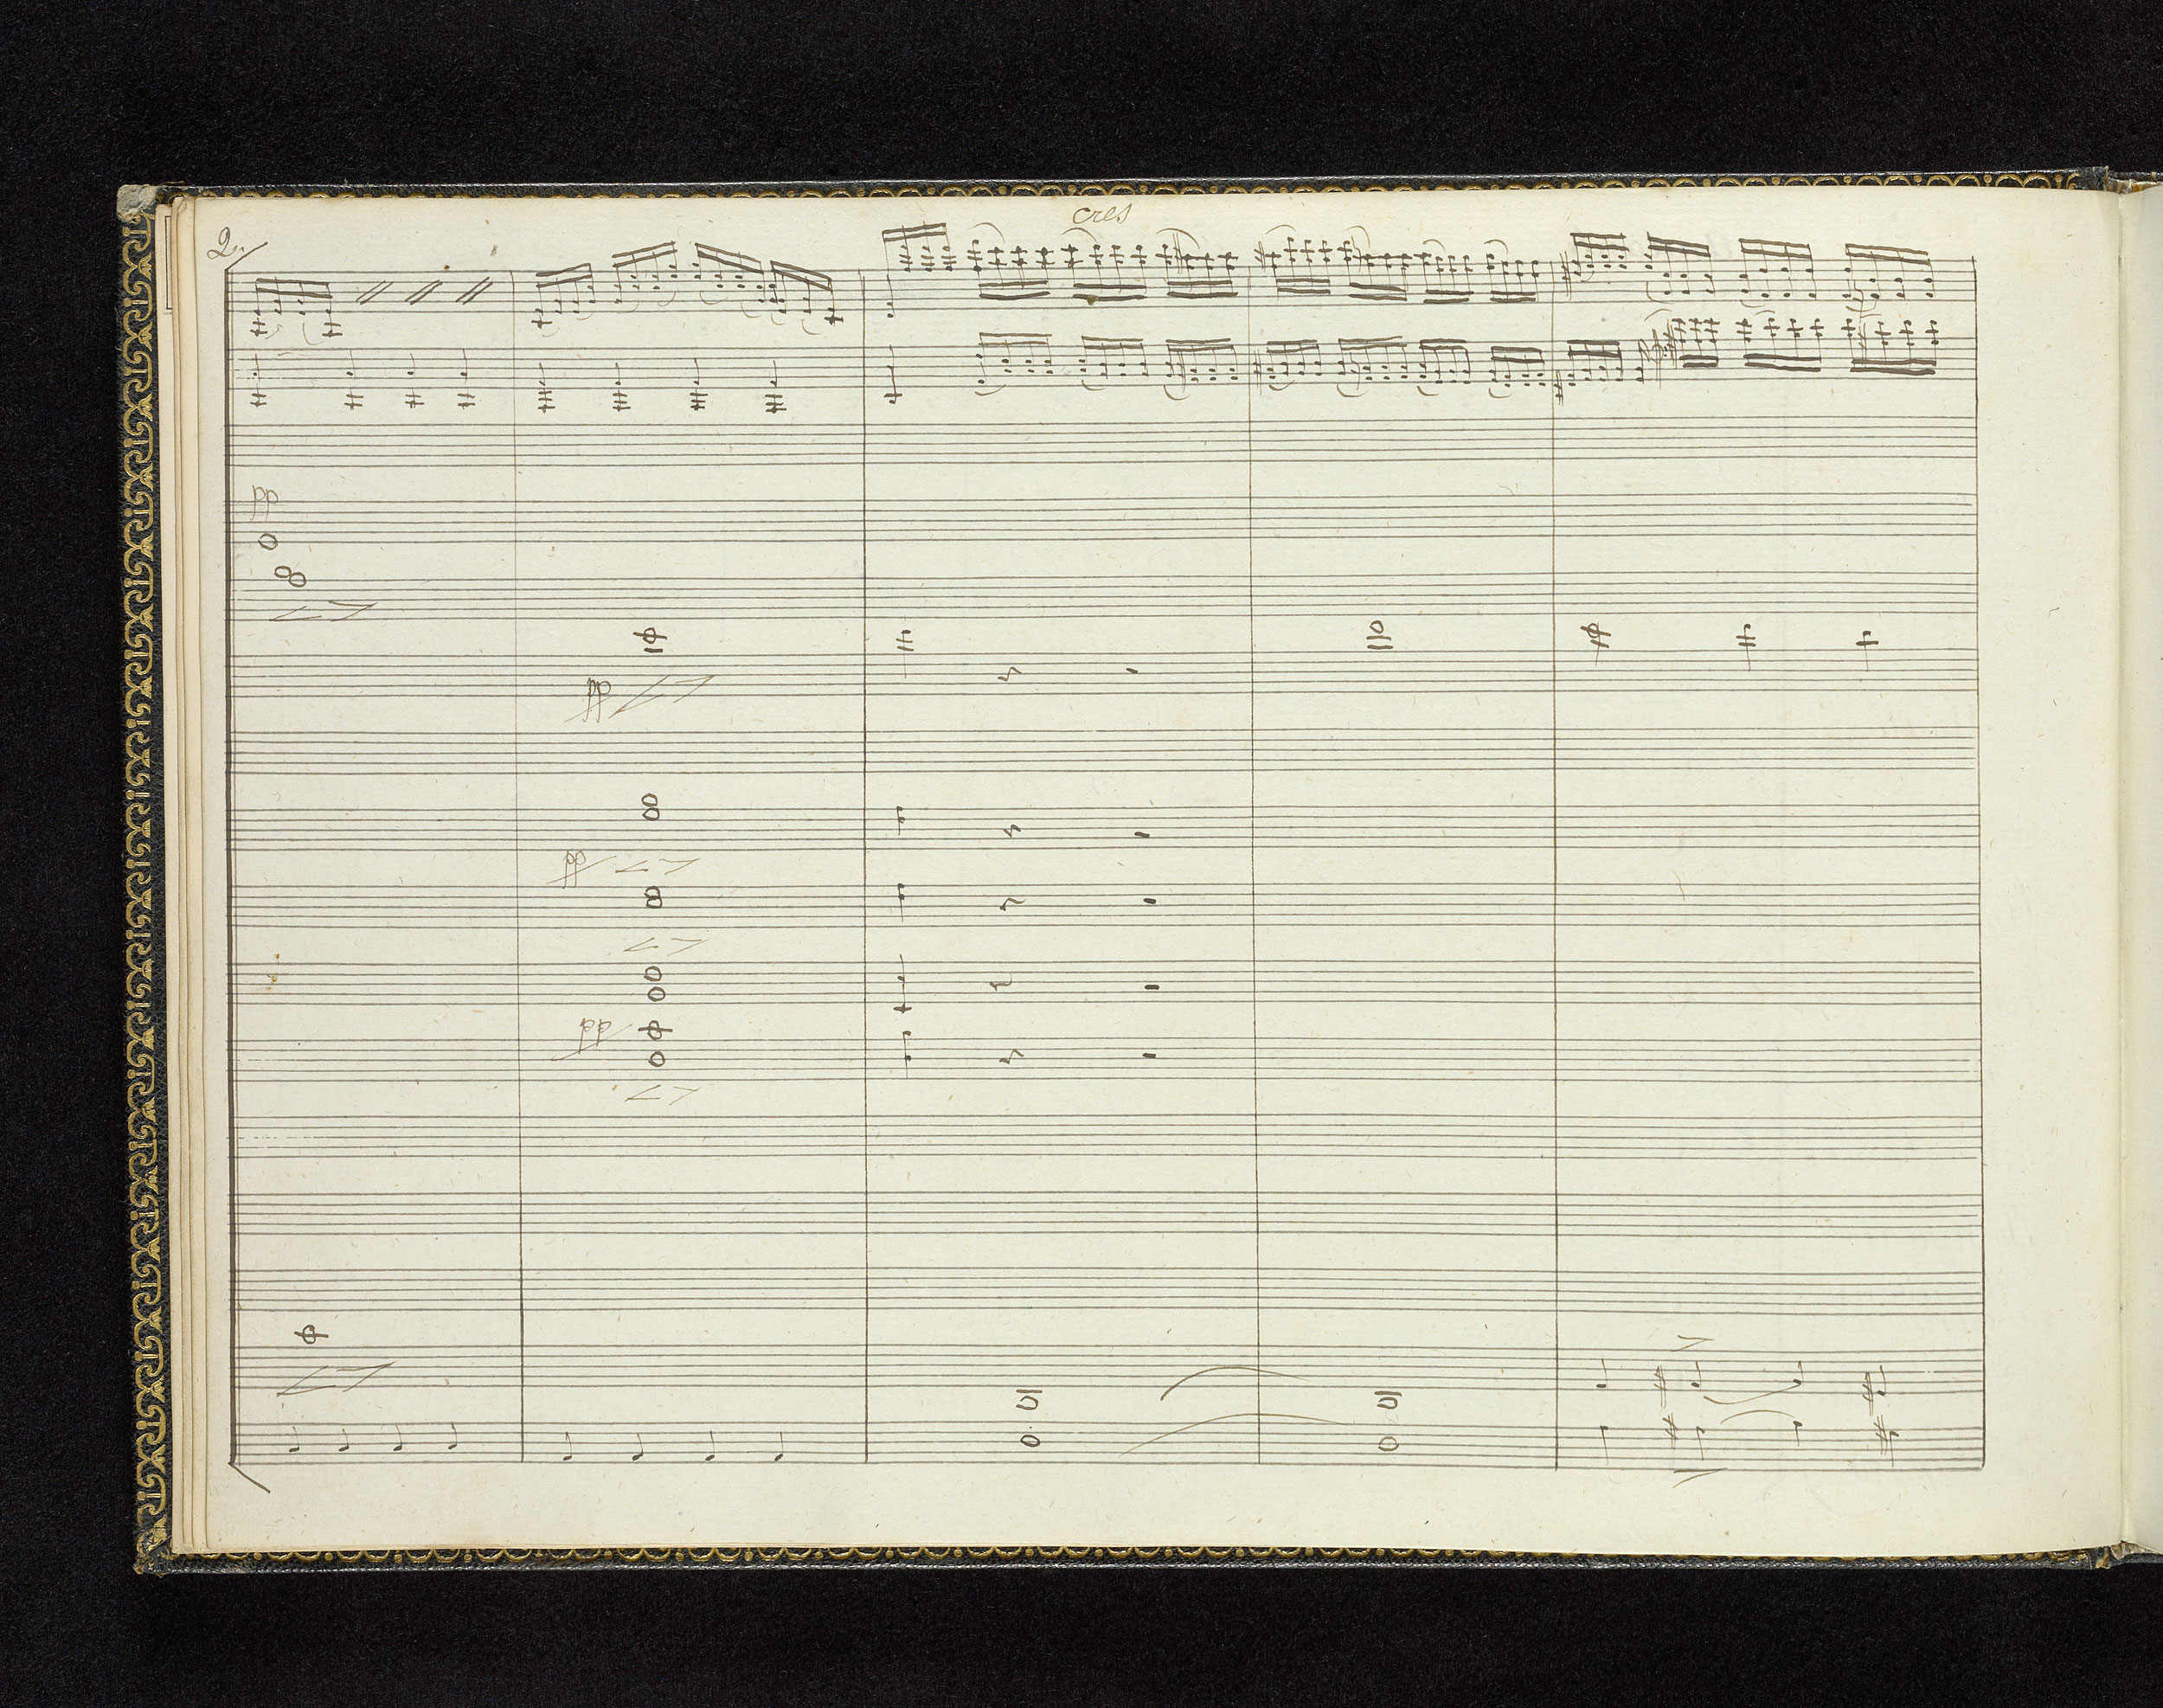 cres
2
pp
pp
pp
pp